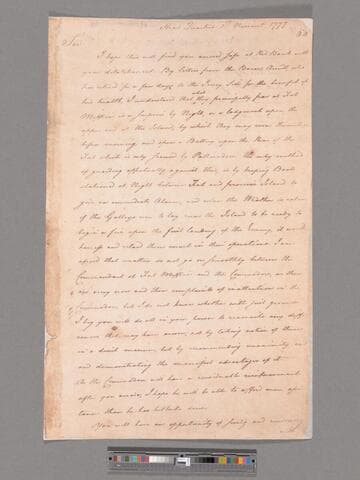 Head Quarters 1st November 1777
Sir
I hope this will find you arrived safe at Red Bank with
your detachment. By letters from the Baron Arendt, who
has retired for a few days to the Jersey Side for the benefit of
his health, I understand that what they principally fear at Fort
Mifflin is a surprise by Night, or a lodgment upon the
upper end of the Island, by which they may
before morning and open a Battery upon the Rear of the
Fort which is only fenced by Pallisadoes. The only method
of guarding effectually against this, is by keeping Boats
stationed at Night between Fort and province Island to
give an immediate Alarm, and when the Weather is calm
of the Gallies even to lay near the Island to be ready to
begin a fire upon the first landing of the Enemy, it would
harrass and retard them much in their operations. I am
afraid that matters do not go on smoothly between the
Commandant at Fort Mifflin and the Commodore, as there
are every now and then complaints of inattention in the
Commodore, but I do not know whether with just ground
I beg you will do all in your power to reconcile any diff
erences that may have arisen, not by taking notice of them
in a direct manner, but by recommending unanimity
and demonstrating the advantages of it
As the Commodore will have a considerable reinforcement
after you arrive, I hope he will be able to afford more
tance than he has hitherto done.
You will have an opportunity of